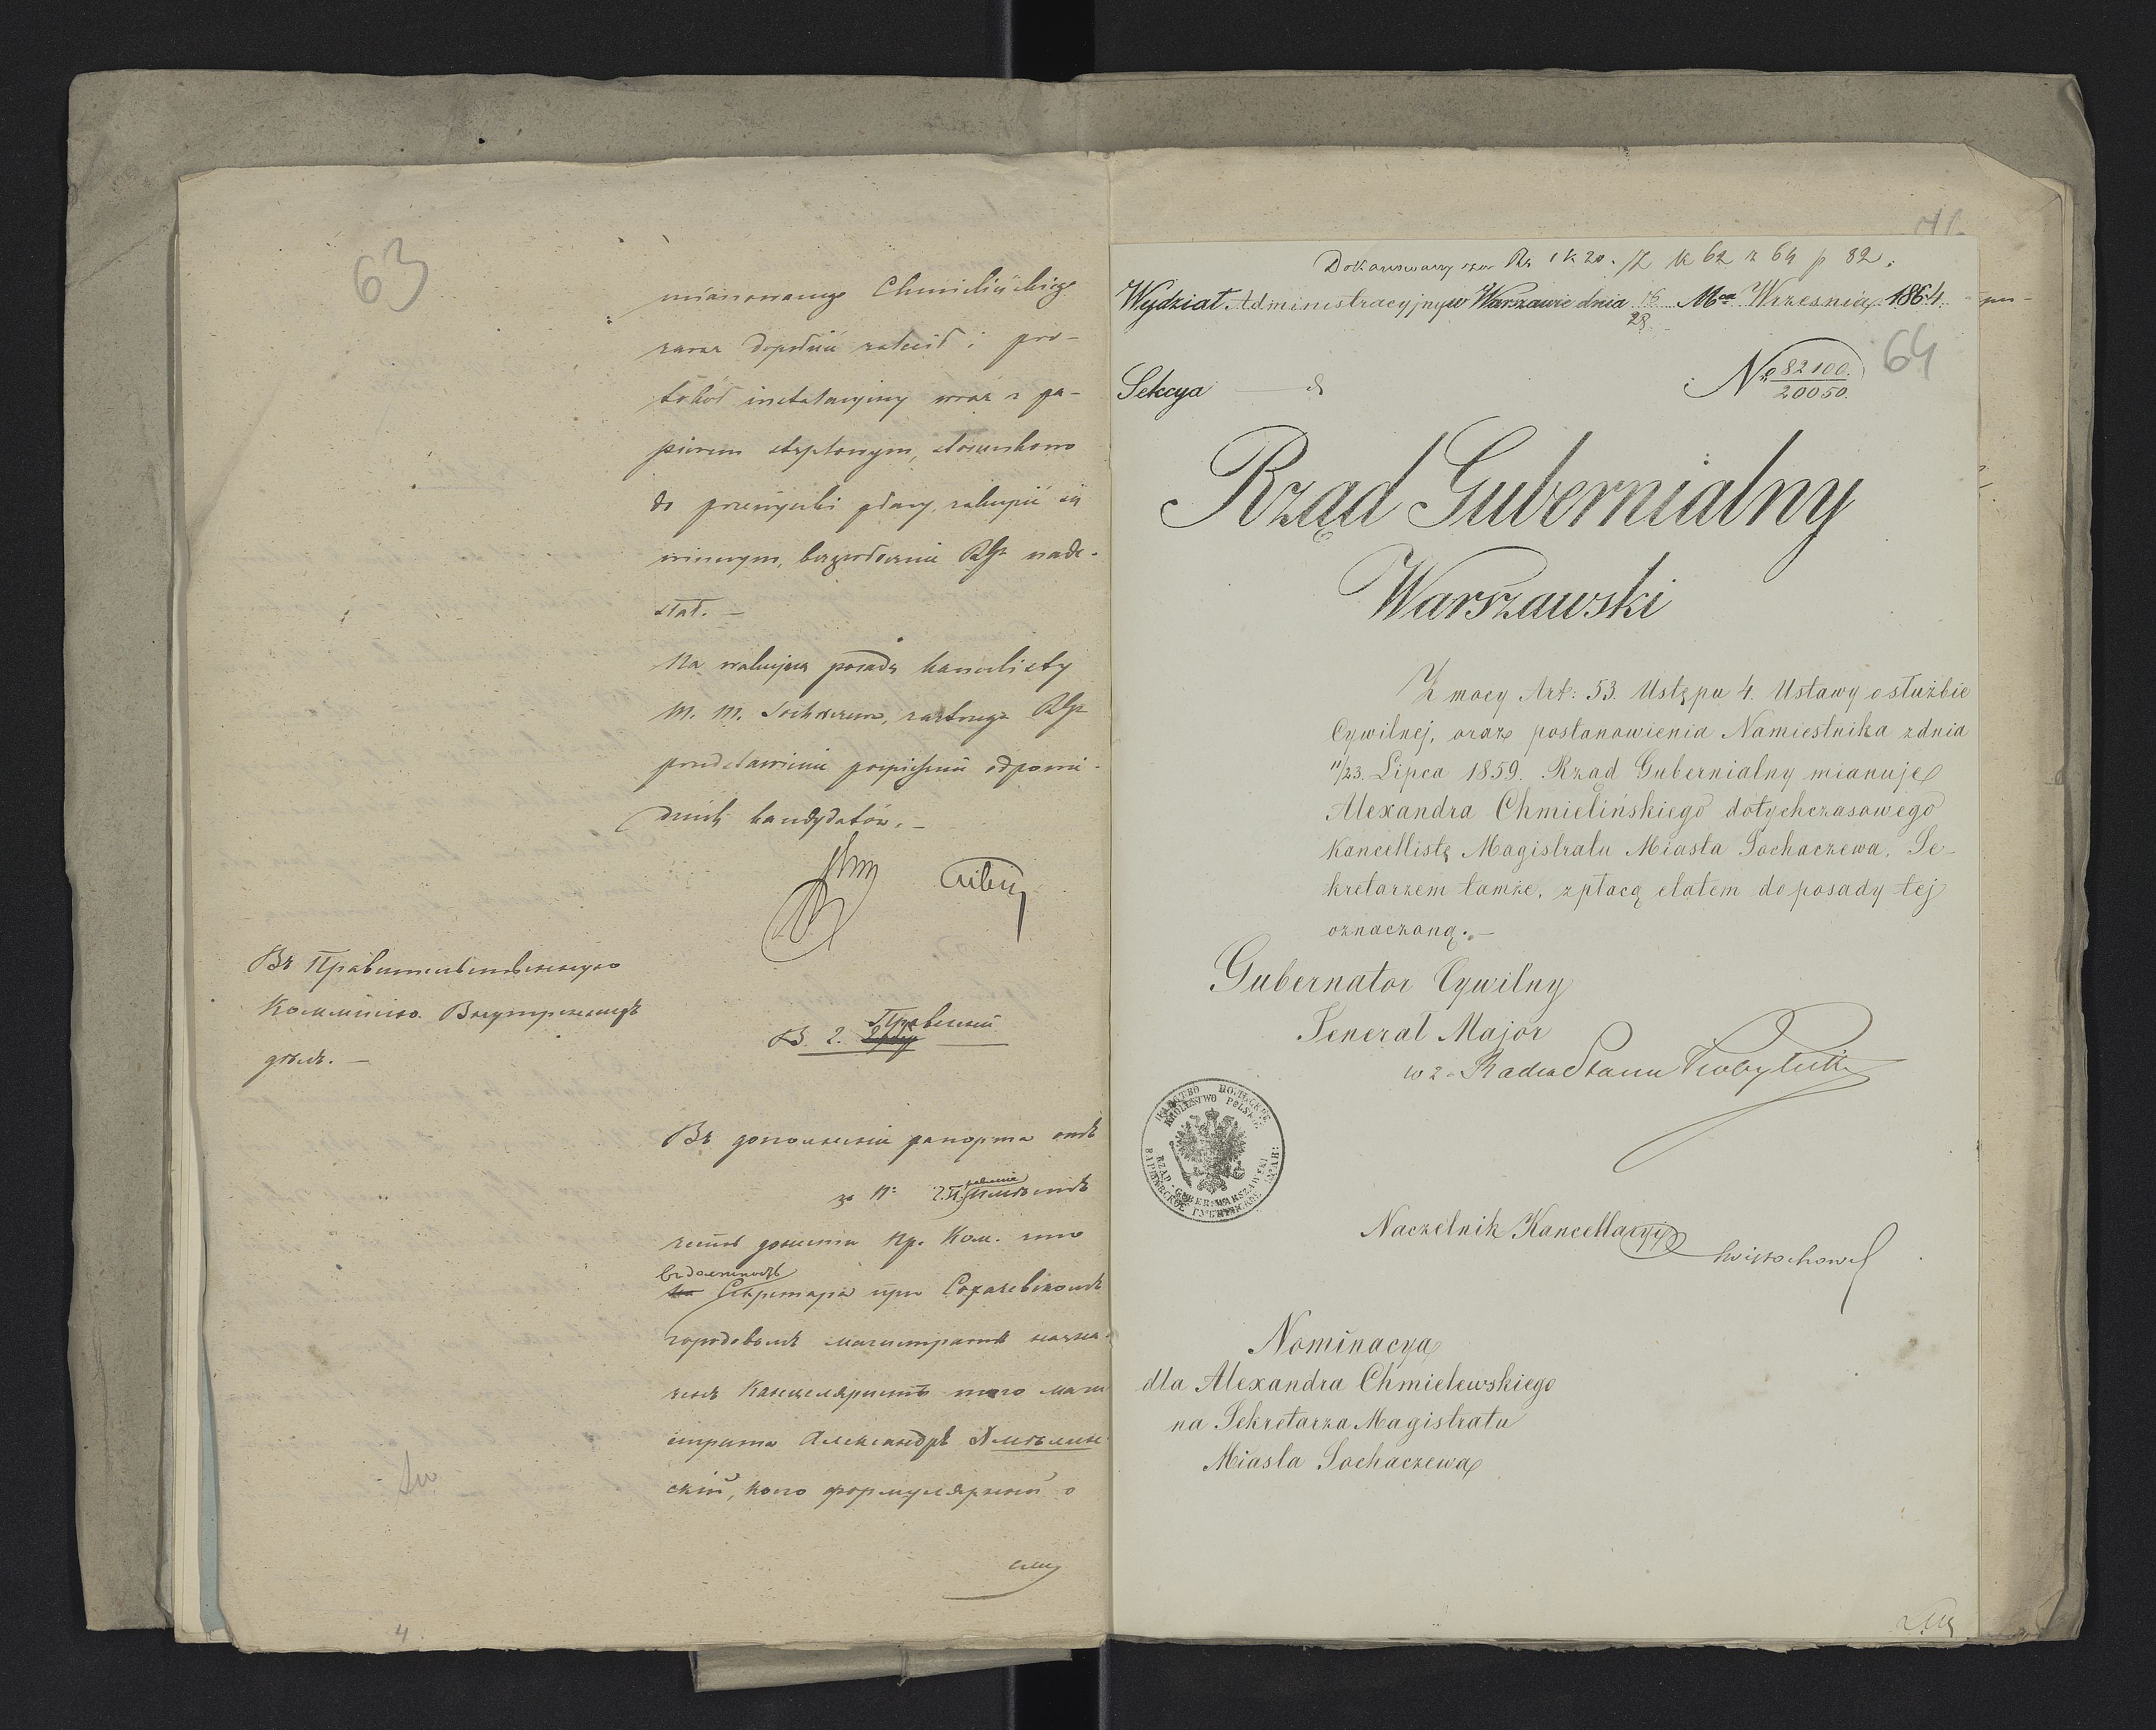 63
mianowanego Chmielińskiego
zaraz dopełnić zalecił i pro-
tokół instalacyjny wraz z pa-
pierem stęplowym, stosunkowo
do przewyżki płacy, zakupić się
winnym, bezzwłocznie RGr nade-
słał. —
Na wakującą posadę kancelisty
M. M. Sochaczewa, zastrzega RGr
przedstawienie pospieszne odpowie-
dnich kandydatów. —
Въ Правительственную
Коммисію Внутреннихъ
дѣлъ. —
В. Г. Правленій
Въ дополненіи рапорта отъ
за №: Г. П. имѣетъ
честь донести Пр. Ком. что
въ должность
Секретаря при Сохачевскомъ
городовомъ магистратѣ назна-
ченъ Канцеляристъ того маги
страта Александръ Хмѣлин
скій, коего формулярный о
4
64
Wydział Administracyjny w Warszawie dnia 16 Mca Września 1864.
28
Sekcya
№ 82100.
20050.
Rząd Gubernialny
Warszawski
Z mocy Art: 53. Ustępu 4. Ustawy o służbie
Cywilnej, oraz postanowienia Namiestnika z dnia
11/23. Lipca 1859. Rząd Gubernialny mianuje
Alexandra Chmielińskiego dotychczasowego
Kancellistę Magistratu Miasta Sochaczewa, Se-
kretarzem tamże, z płacą etatem do posady tej
oznaczoną. —
Gubernator Cywilny
Jenerał Major
w z. Radca Stanu
KRÓLESTWO POLSKIE
RZĄD GUBER: WARSZAWSKI
Naczelnik Kancellaryi
Nominacya
dla Alexandra Chmielewskiego
na Sekretarza Magistratu
Miasta Sochaczewa